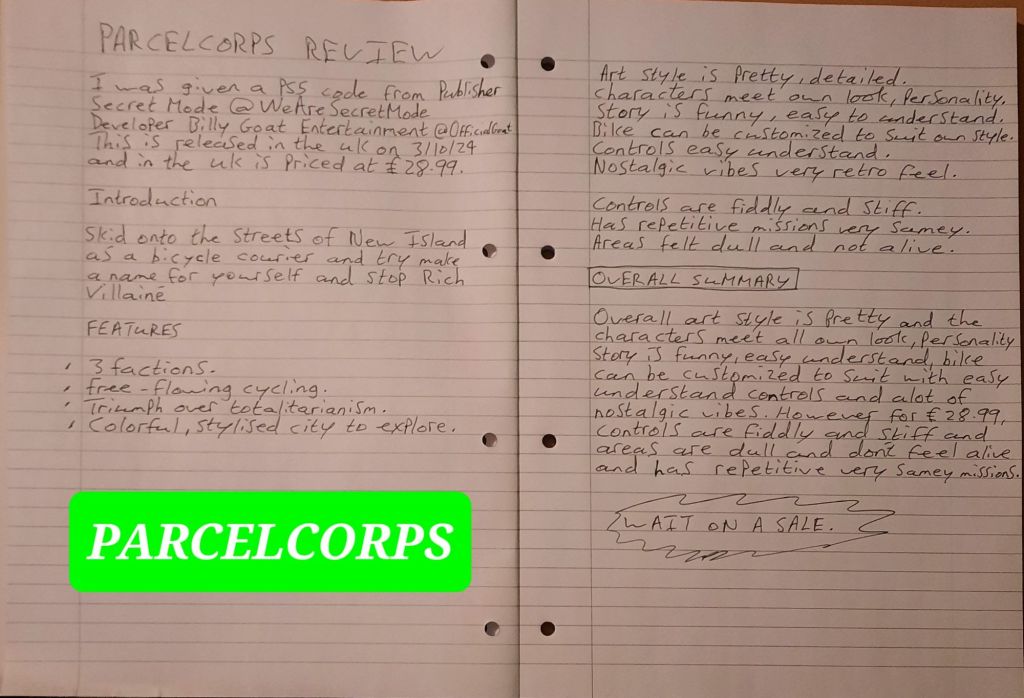 PARCELCORPS REVIEW
I was given a PS5 code from Publisher
Secret Mode @WeAreSecretMode
Developer Billy Goat Entertainment @OfficialGoat
This is released in the uk on 3/10/24
and in the uk is Priced at £28.99.
Introduction
Skid onto the streets of New Island
as a bicycle courier and try make
a name for yourself and stop Rich
Villainé
FEATURES
3 factions.
free-flowing cycling.
Triumph over totalitarianism.
Colorful, stylised city to explore.
PARCELCORPS
Art style is Pretty, detailed.
characters meet own look, Personality.
Story is funny, easy to understand.
Bike can be customized to suit own style.
Controls easy understand.
Nostalgic vibes very retro feel.
Controls are fiddly and stiff.
Has repetitive missions very samey.
Areas felt dull and not alive.
OVERALL SUMMARY
Overall art style is Pretty and the
characters meet all own look, Personality
Story is funny, easy understand, bike
can be customized to suit with easy
understand controls and alot of
nostalgic vibes. However for £28.99,
controls are fiddly and stiff and
areas are dull and don't feel alive
and has repetitive very samey missions.
WAIT ON A SALE.